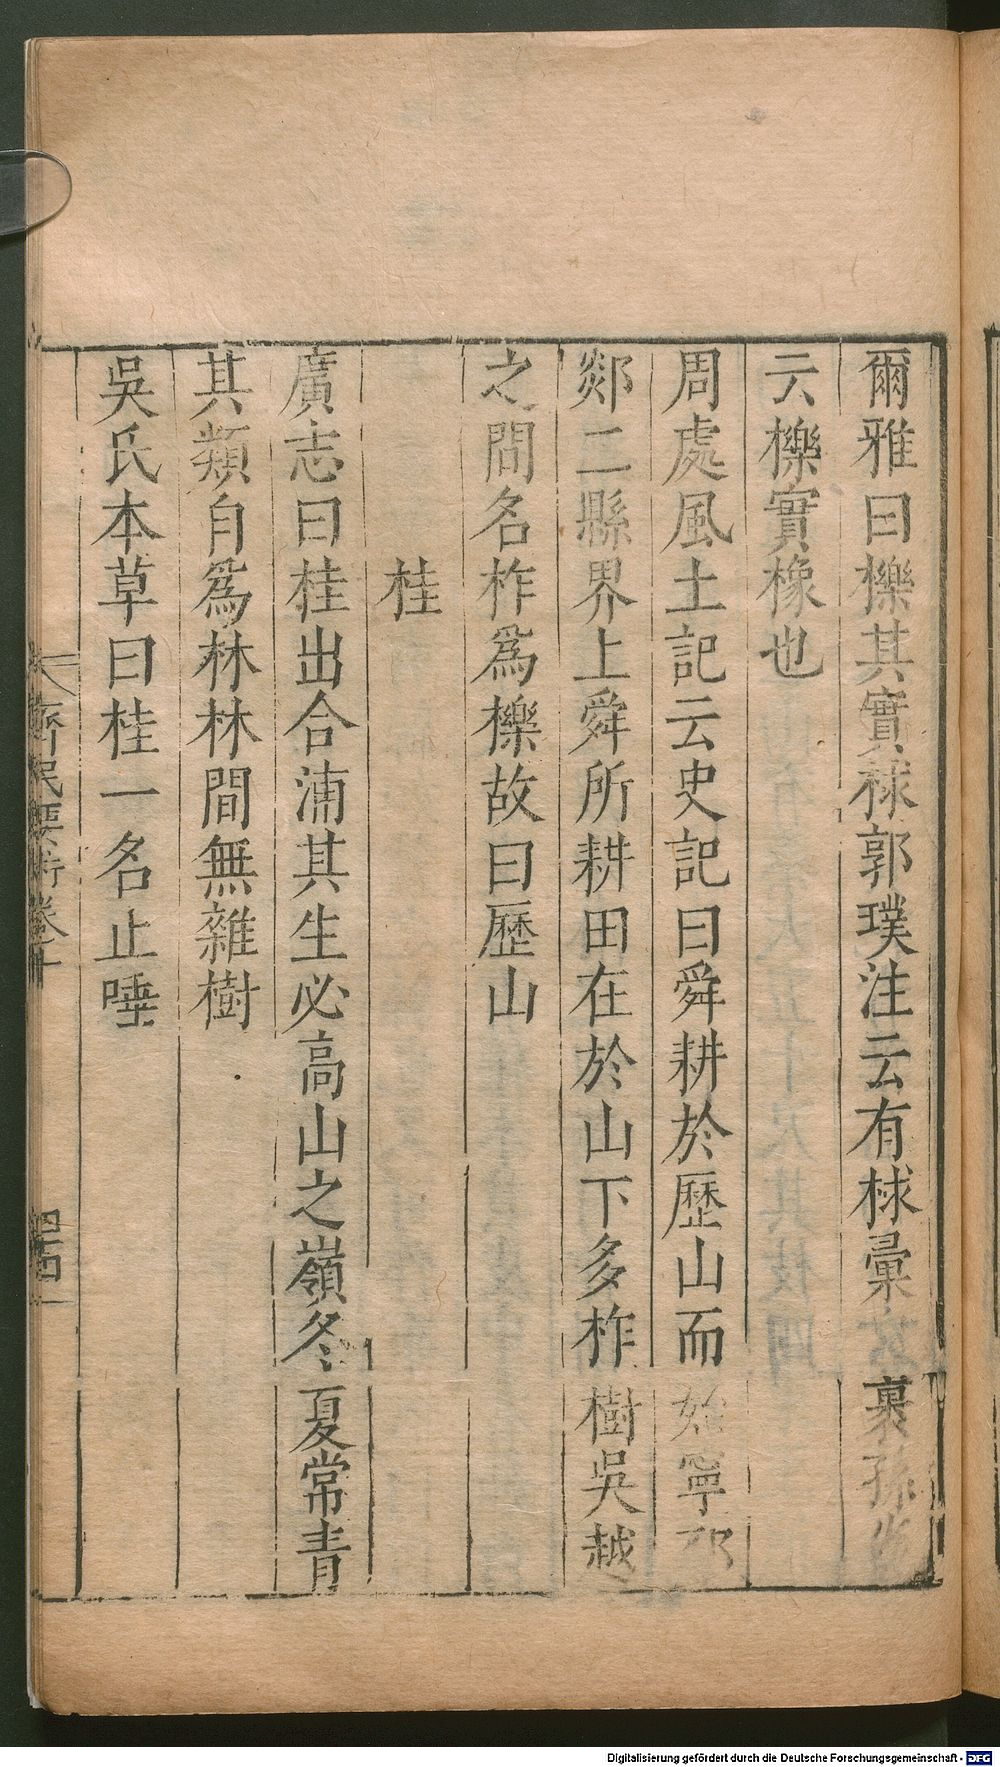 爾雅曰櫟其實梂郭璞注云有梂彙自裹孫炎
云櫟實橡也
周處風土記云史記曰舜耕於歷山而始寧邳
郯二縣界上舜所耕田在於山下多柞樹吳越
之間名柞為櫟故曰歷山
桂
廣志曰桂出合浦其生必高山之嶺冬夏常青
其類自為林林間無雜樹
吳氏本草曰桂一名止唾
齊民要術卷十
四十四
Digitalisierung gefördert durch die Deutsche Forschungsgemeinschaft - DFG